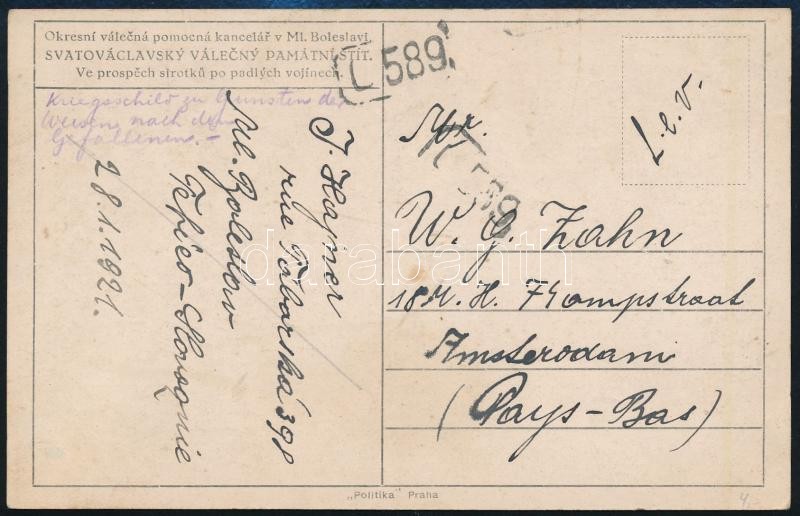 Okresní válečná pomocná kancelář v Ml. Boleslavi.
SVATOVÁCLAVSKÝ VÁLEČNÝ PAMÁTNÍ ŠTÍT.
Ve prospěch sirotků po padlých vojínech.
Kriegsschild zu Gunsten der
Weisen nach den
Gefallenen.-
L 589.
L 589
T. Hajner
rue Táborská 398
Ml. Boleslav
Tchéco-Slovaquie
28.1.1921.
L.e.v.
Mr.
W. G. Zahn
Amsterodam
(Pays-Bas)
„Politika" Praha
4,-
darabanth